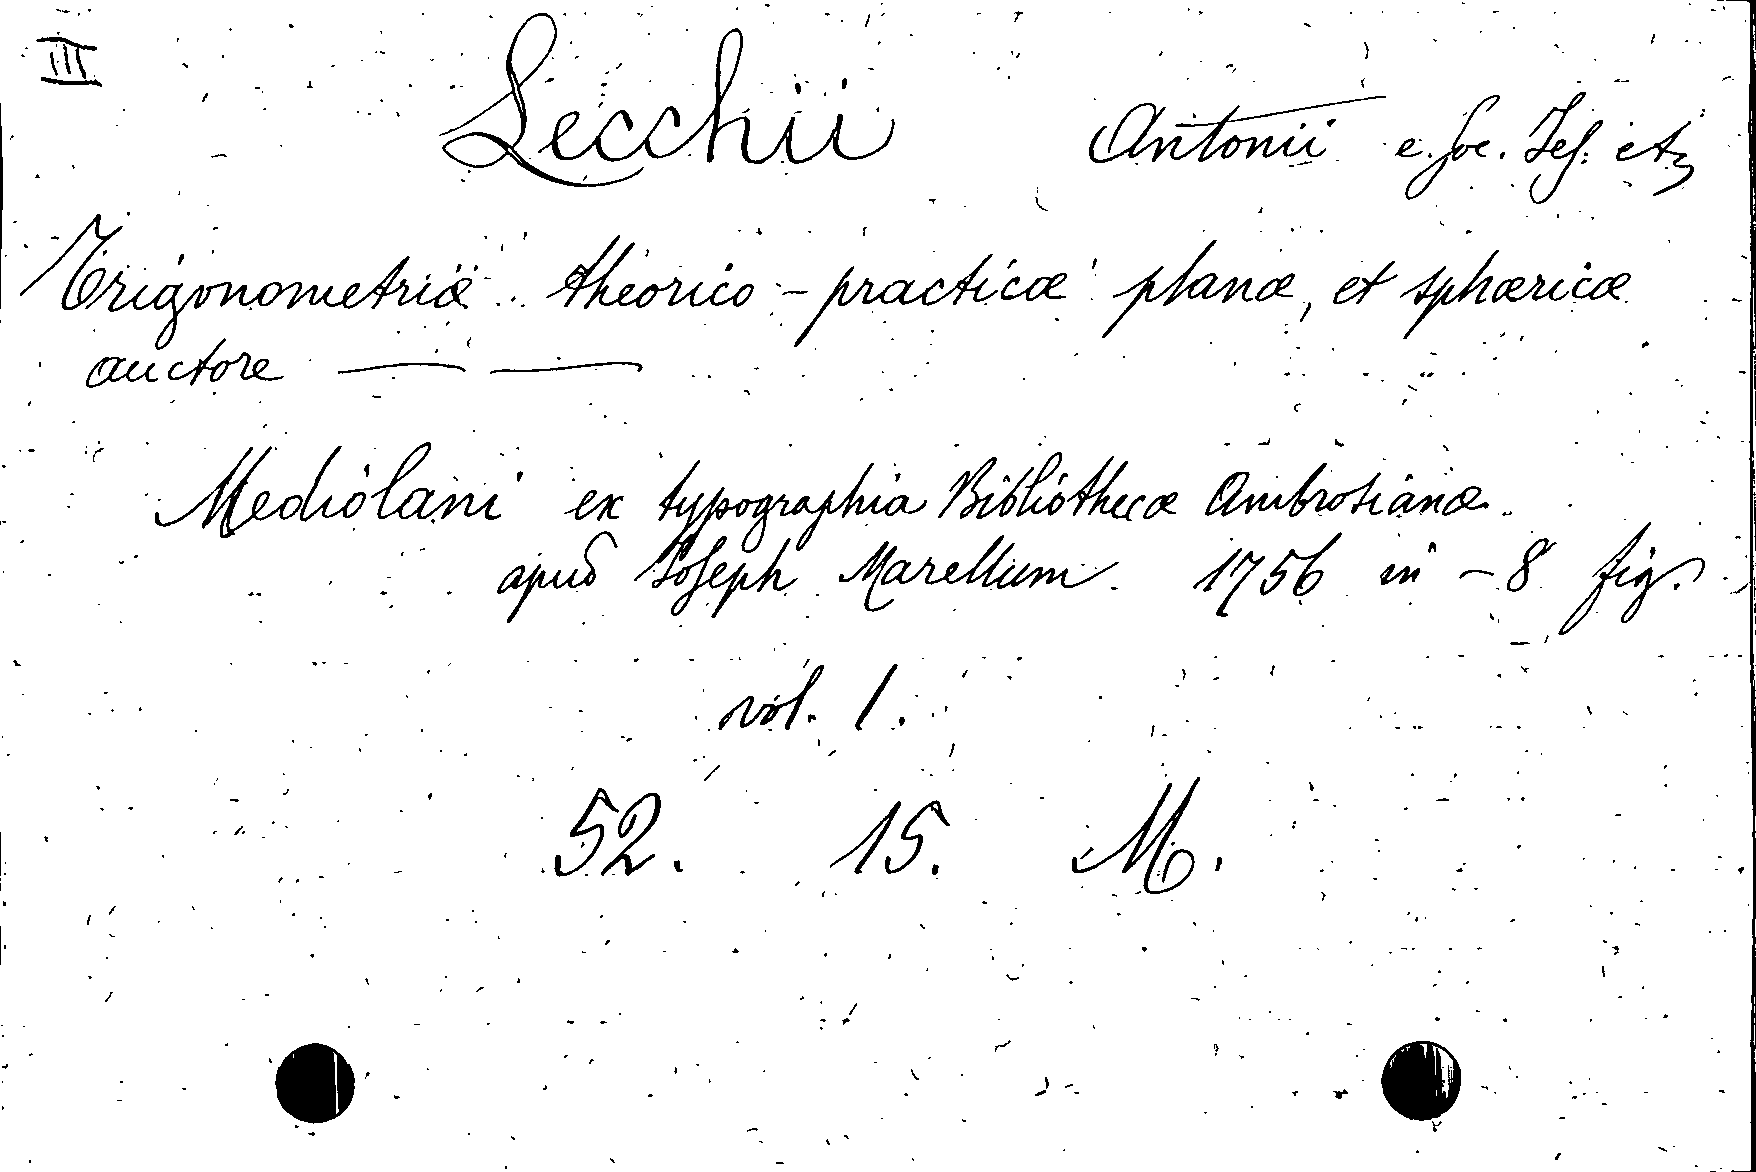 III
Lecchii Antonii e Soc. Jes: etc
Trigonometriæ theorico - practicæ planæ, et sphæricæ
auctore — —
Mediolani ex typographia Bibliothecæ Ambrosianæ.
apud Joseph Marellum. 1756 in - 8 fig.
vol. 1.
52. 15. M.